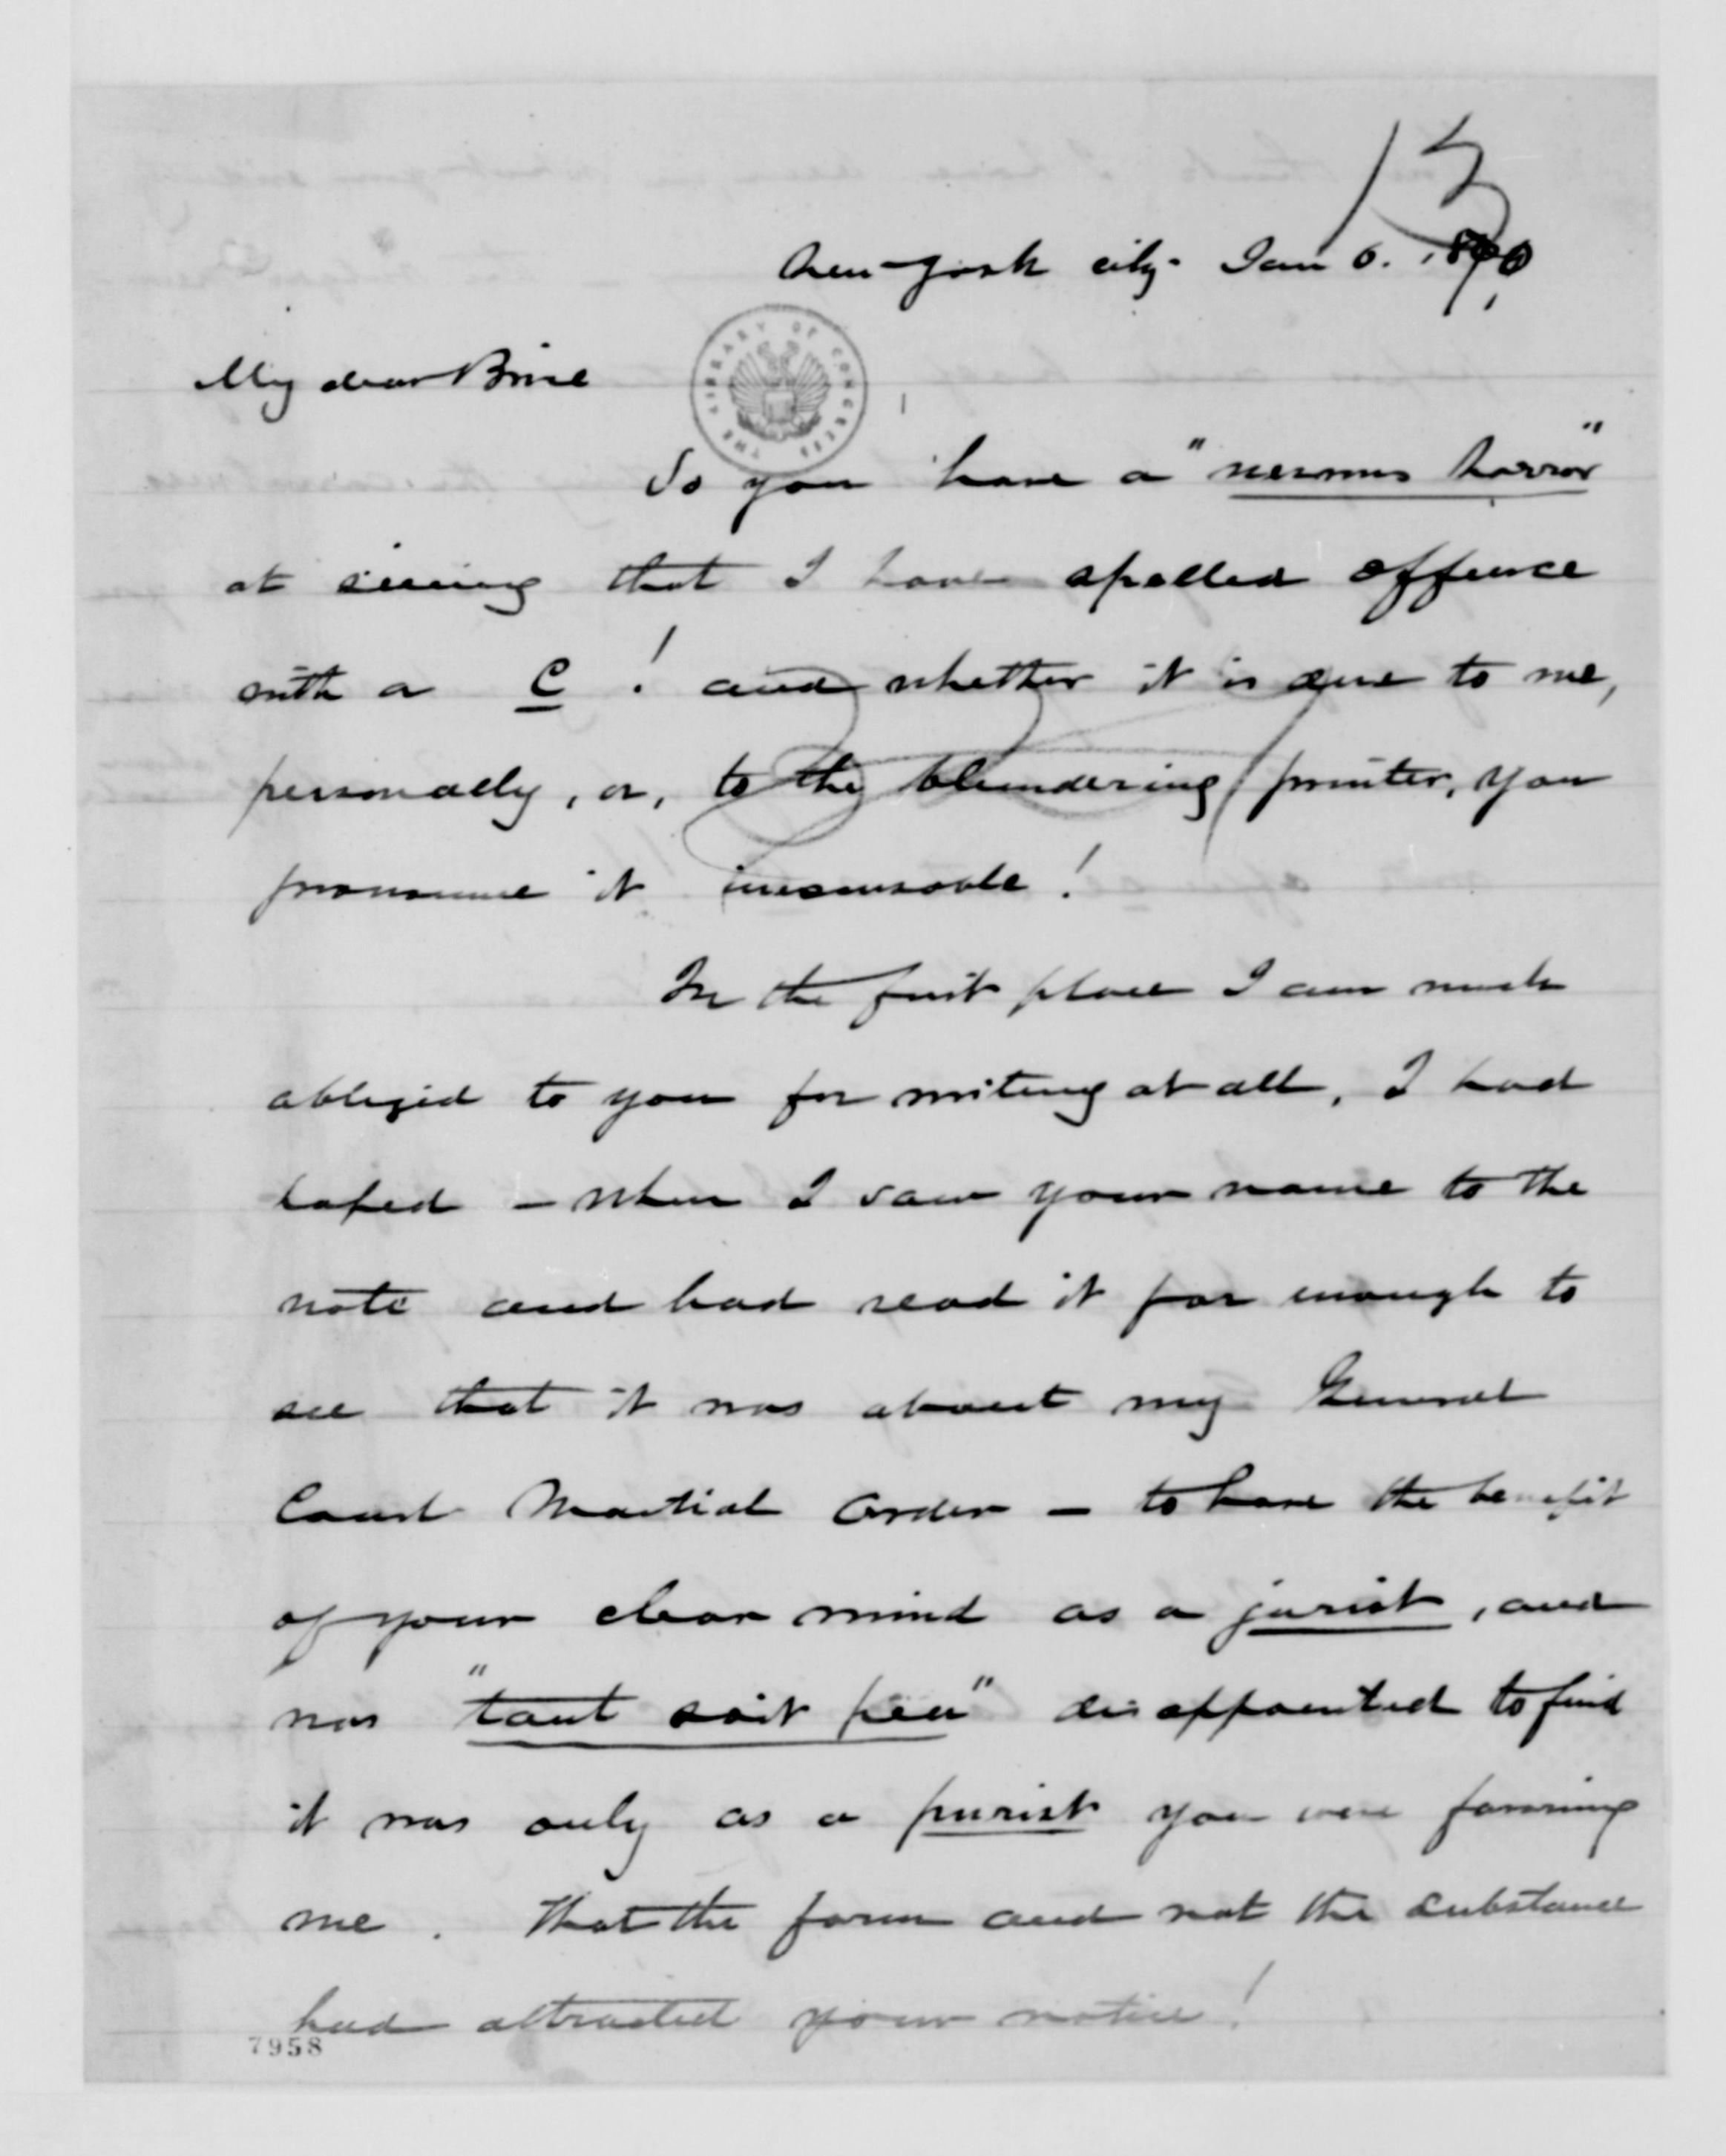 13
New-York city- Jan 6. 1890
My dear Brice
THE LIBRARY OF CONGRESS
So you have a "nervous horror"
at seeing that I have spelled offence
with a C ! and whether it is due to me,
personally, or, to the blundering printer, you
pronounce it inexcusable!
In the first place I am much
obliged to you for writing at all, I had
hoped - when I saw your name to the
note and had read it far enough to
see that it was about my General
Court Martial Order - to have the benefit
of your clear mind as a jurist, and
was "tant soit peu" disappointed to find
it was only as a purist you were favoring
me. That the form and not the substance
had attracted your notice!
7958